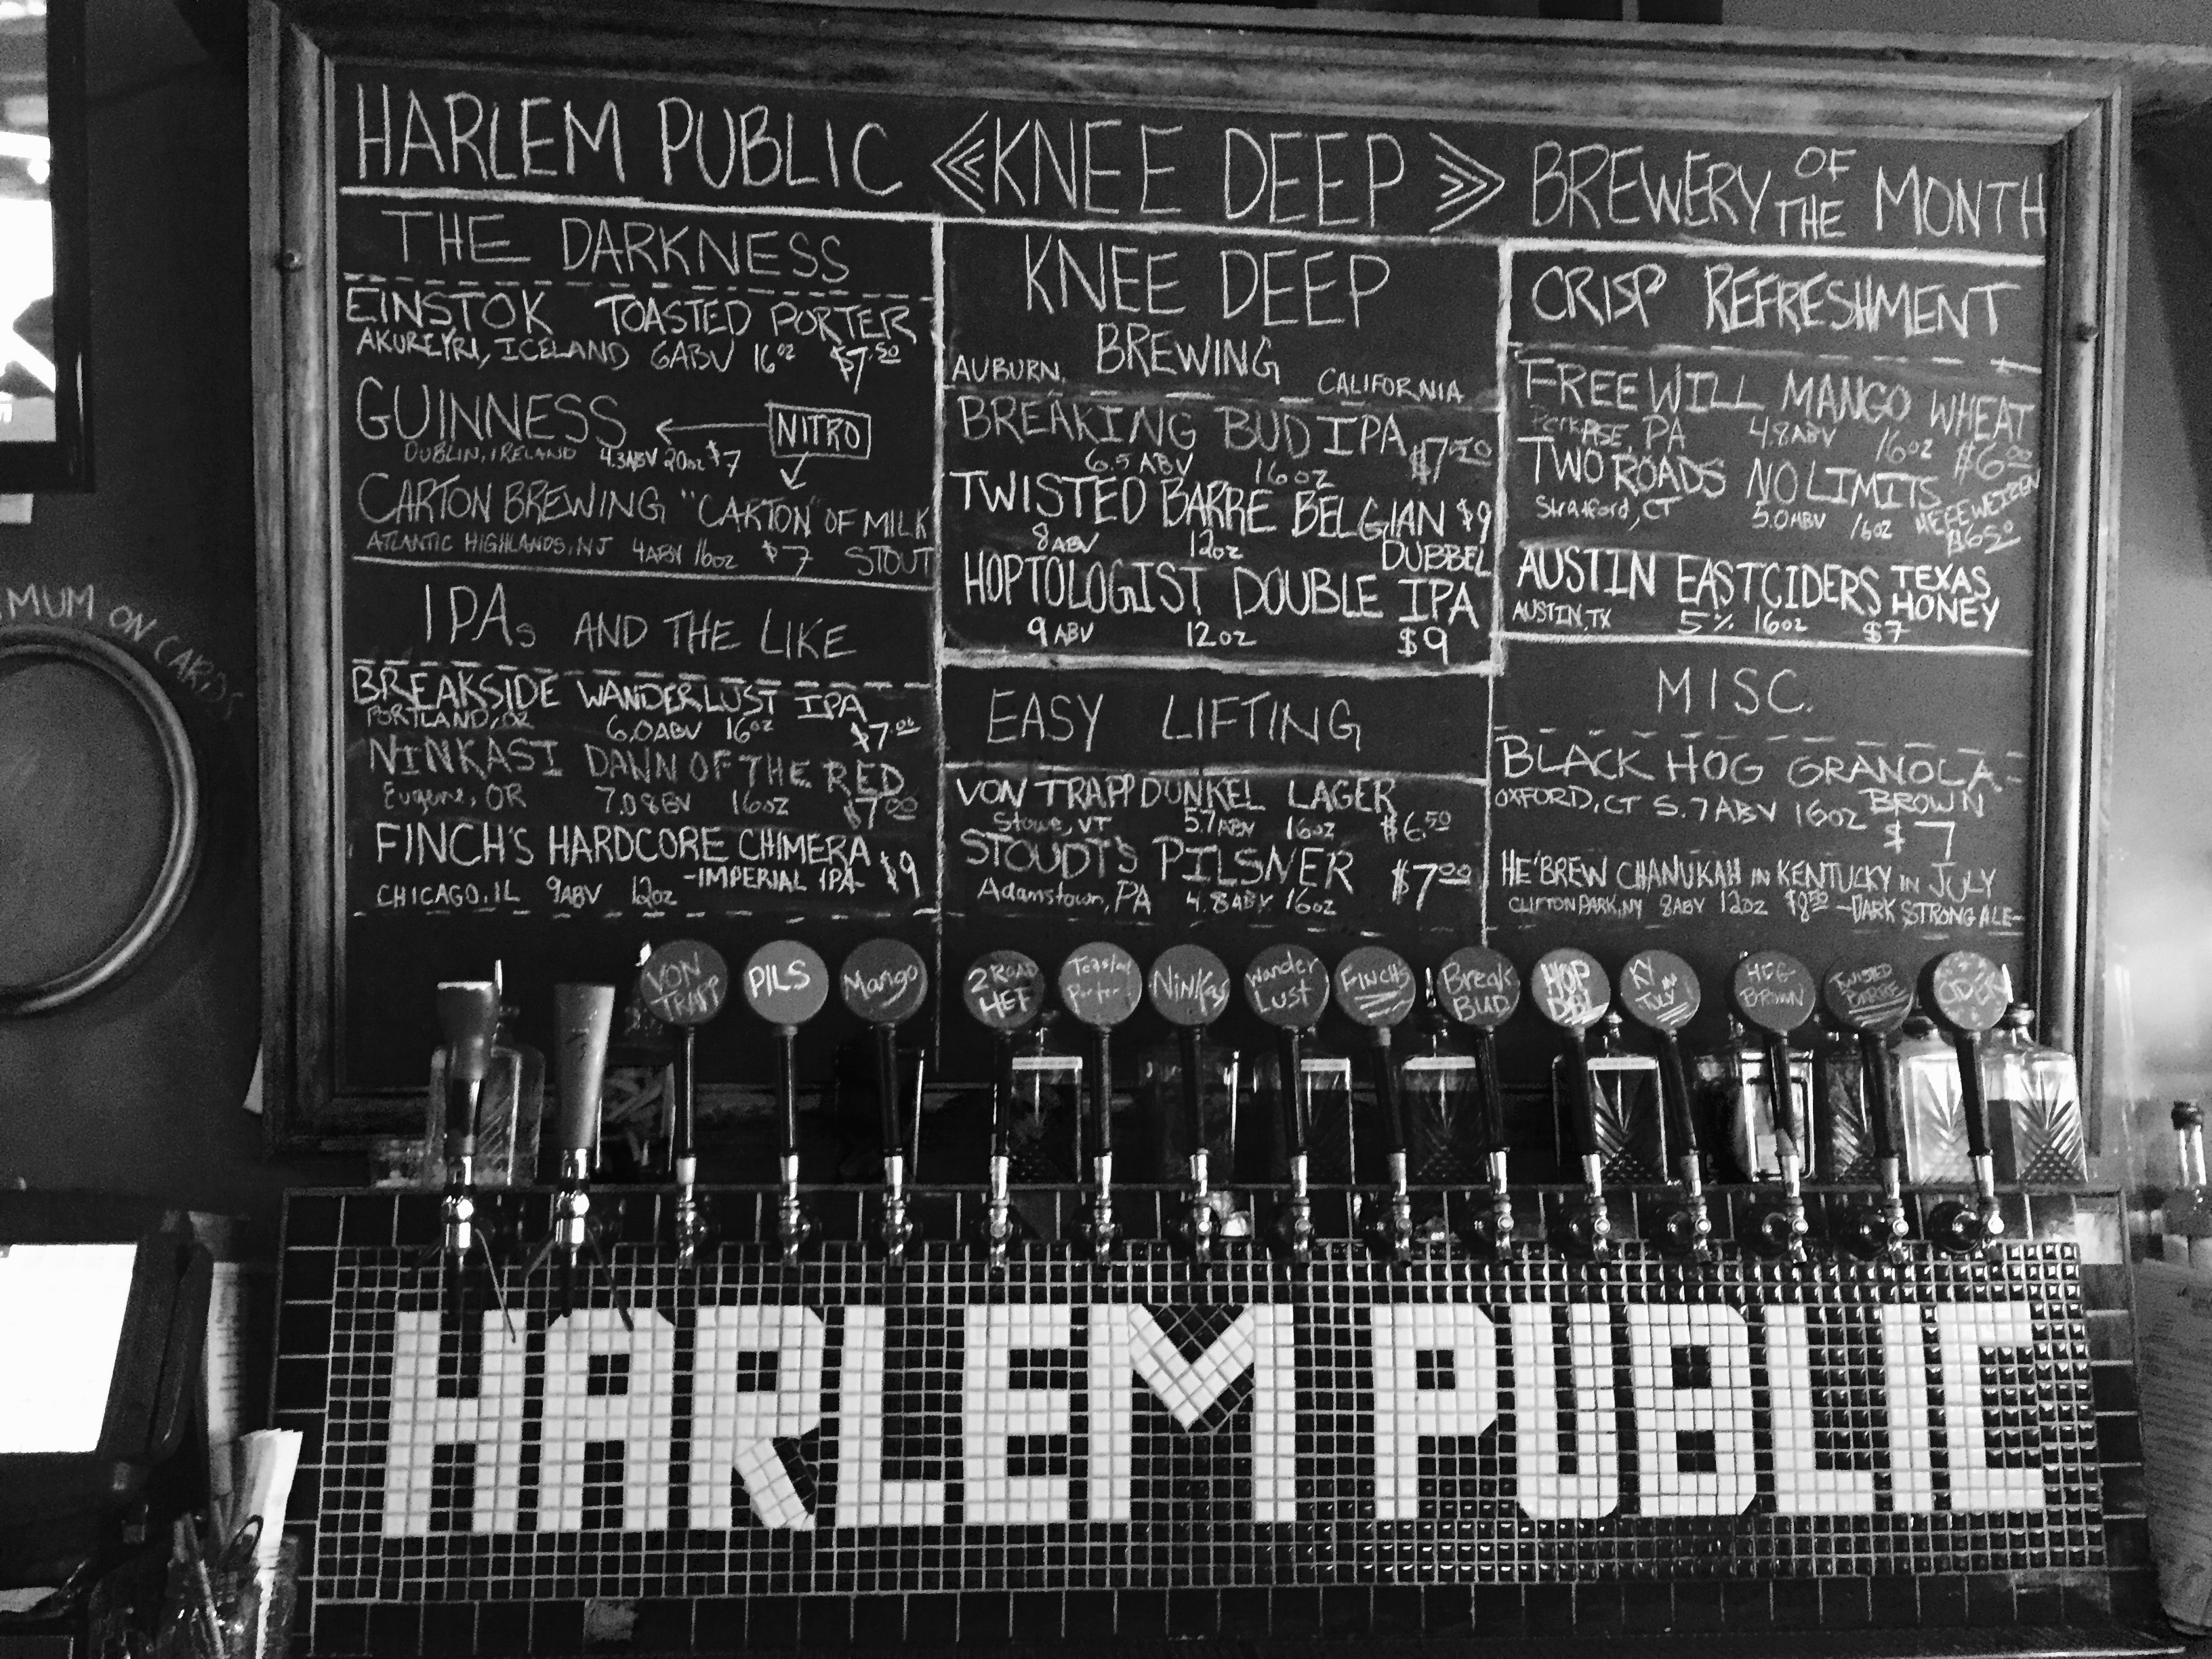 HARLEM PUBLIC <<KNEE DEEP>> BREWERY OF THE MONTH
THE DARKNESS
EINSTOK TOASTED PORTER
AKUREYRI, ICELAND 6ABV 16oz $7.50
GUINNESS ← NITRO
DUBLIN, IRELAND 4.3ABV 20oz $7
CARTON BREWING "CARTON" OF MILK
ATLANTIC HIGHLANDS, NJ 4ABV 16oz $7 STOUT
IPAs AND THE LIKE
BREAKSIDE WANDERLUST IPA
PORTLAND, OR 6.0ABV 16oz $7.00
NINKASI DAWN OF THE RED
Eugene, OR 7.0ABV 16oz $7.00
FINCH'S HARDCORE CHIMERA $9
-IMPERIAL IPA-
CHICAGO, IL 9ABV 12oz
KNEE DEEP
BREWING
AUBURN, CALIFORNIA
BREAKING BUD IPA $7.50
6.5 ABV 16oz
TWISTED BARRE BELGIAN $9
8ABV 12oz DUBBEL
HOPTOLOGIST DOUBLE IPA
9 ABV 12oz $9
EASY LIFTING
VON TRAPP DUNKEL LAGER
Stowe, VT 5.7ABV 16oz $6.50
STOUDT'S PILSNER $7.00
Adamstown, PA 4.8ABV 16oz
CRISP REFRESHMENT
FREE WILL MANGO WHEAT
PERKASE, PA 4.8ABV 16oz $6.00
TWO ROADS NO LIMITS
Stratford, CT 5.0ABV 16oz HEFEWEIZEN
$6.50
AUSTIN EASTCIDERS TEXAS HONEY
AUSTIN, TX 5% 16oz $7
MISC.
BLACK HOG GRANOLA
OXFORD, CT 5.7ABV 16oz BROWN
$7
HE'BREW CHANUKAH IN KENTUCKY IN JULY
CLIFTON PARK, NY 8ABV 12oz $8.50 -DARK STRONG ALE-
MUM ON CARDS
VON TRAPP
PILS
Mango
2 ROAD HEF
Toasted Porter
Ninkasi
Wander Lust
FINCHS
Break BUD
HOP DBL
KY IN JULY
HOG BROWN
TWISTED BARRE
CIDER
HARLEM PUBLIC